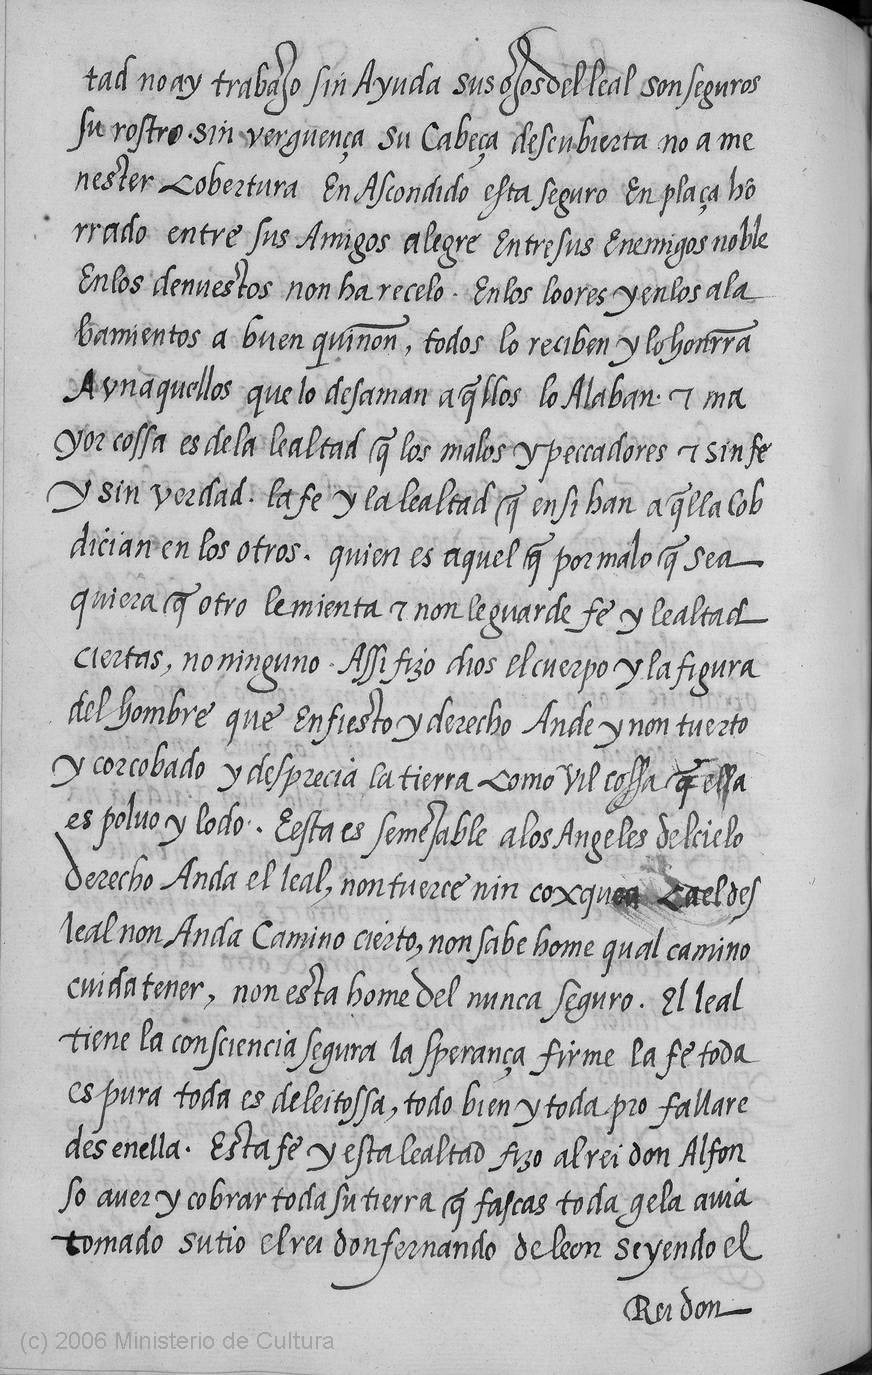 tad no ay trabajo sin Ayuda sus ojos del leal son seguros
su rostro. sin verguença su Cabeça descubierta no a me
nester Cobertura En Ascondido esta seguro En plaça hō
rrado entre sus Amigos alegre Entre sus Enemigos noble
En los denuestos non ha recelo. En los loores y en los ala
bamientos a buen quiñon, todos lo reciben y lo honrrā
Avn aquellos que lo desaman aq̄llos lo Alaban. ⁊ ma
yor cossa es de la lealtad q̄ los malos y peccadores ⁊ sin fe
y sin verdad. la fe y la lealtad q̄ en si han aq̄lla Cob
dician en los otros. quien es aquel q̄ por malo q̄ sea
quiera q̄ otro le mienta ⁊ non le guarde fe y lealtad
ciertas, no ninguno. Assi fizo dios el cuerpo y la figura
del hombre que Enfiesto y derecho Ande y non tuerto
y corcobado y desprecia la tierra Como Vil cossa q̄ essa
es poluo y lodo. E esta es semejable a los Angeles del cielo
derecho Anda el leal, non tuerce nin coxquea Ca el des
leal non Anda Camino cierto, non sabe home qual camino
cuida tener, non esta home del nunca seguro. El leal
tiene la consciencia segura la sperança firme la fe toda
es pura toda es deleitossa, todo bien y toda pro fallare
des en ella. Esta fe y esta lealtad fizo al rei don Alfon
so auer y cobrar toda su tierra q̄ fascas toda gela auia
tomado su tio el rei don fernando de leon seyendo el
Rei don
(c) 2006 Ministerio de Cultura